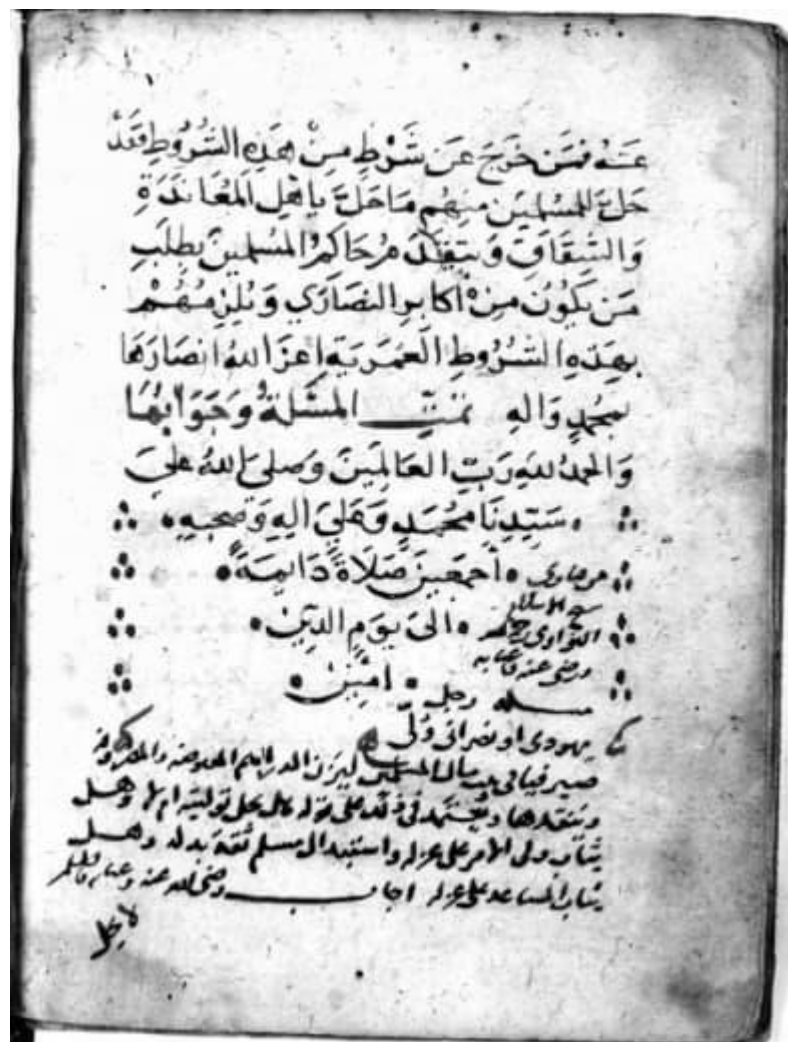 عَنْهُ فمَن خَرَجَ عَن شَرْطٍ مِنْ هَذِهِ الشُّرُوطِ فَقَدْ
حَلَّ للمُسْلِمِينَ مِنهُم مَا حَلَّ بِاَهْلِ المُعَانَدَةِ
وَالشِقَاقِ وَيَتقَدَّمُ حَاكمُ المُسْلمِينَ بِطَلَبِ
مَن يَكُونُ مِنْ اكَابِرِ النصَارَي وَيُلزِمُهُمْ
بِهَذِهِ الشُرُوطِ العُمَرِيَةِ اعَزَ اللهُ انصَارَهَا
بمُحَمدٍ وَالِهِ تمّت المسْئَلةُ وَجَوَابُهَا
وَالحمدُ للهِ رَبِّ العَالمِينَ وَصَلىَ اللهُ عَليَ
سَيّدِنَا مُحَمَدٍ وَعَليَ الِهِ وَصَحبِهِ
اجمَعِينَ صَلَاةً دَايمَةً
اليَ يَومِ الدِّينِ
امِيْن
من فتاوي
شيخ الاسلام
النواوى رحمه الله
ورضى عنه وعنا به
مسئله رجل
يهودى او نصرانى وُلّى
صيرفيا فى بيت مال المسلمين ليزن الدراهم المقبوضه والمصروفه
وينقدها ويُعتمد فى ذلك على قوله هل يحل توليته ام لا وهل
يثاب ولى الامر على عزله واستبدال مسلم ثقة بدله وهل
يثاب المساعد على عزله اجاب رضى الله عنه
لا يحل